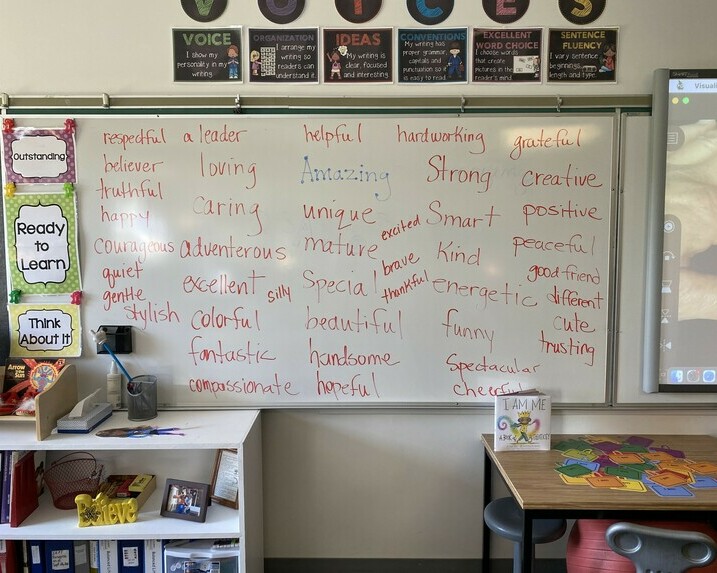 VOICES
VOICE
I show my
personality in my
writing.
ORGANIZATION
I arrange my
writing so
readers can
understand it.
IDEAS
My writing is
clear, focused
and interesting
CONVENTIONS
My writing has
proper grammar,
capitals and
punctuation so it
is easy to read.
EXCELLENT
WORD CHOICE
I choose words
that create
pictures in the
reader's mind.
SENTENCE
FLUENCY
I vary sentence
beginnings,
length and type.
Outstanding
Ready
to
Learn
Think
About it
respectful
believer
truthful
happy
courageous
quiet
gentle
stylish
a leader
loving
caring
adventerous
excellent
silly
colorful
fantastic
compassionate
helpful
Amazing
unique
mature
Special
beautiful
handsome
hopeful
excited
brave
thankful
hardworking
Strong
Smart
Kind
energetic
funny
Spectacular
cheerful
grateful
creative
positive
peaceful
good friend
different
cute
trusting
Visuali
Arrow
to the
Sun
I AM ME
Believe